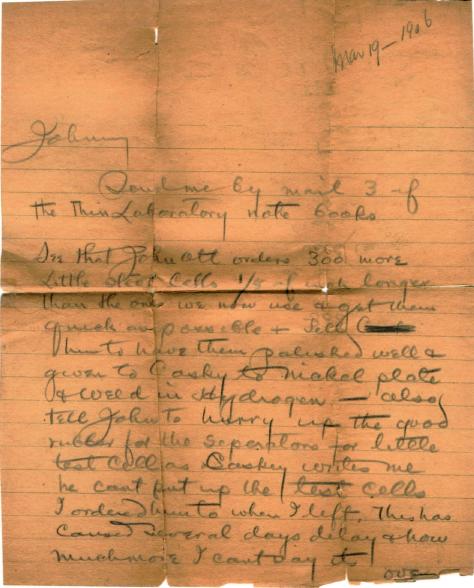 Mar 19 - 1906
Johnny
Send me by mail 3 of
the Thin Laboratory note books
See that John Ott orders 300 more
little steel cells 1/2 inch longer
than the ones we now use & get them
quick as possible & tell
him to have them polished well &
given to Caskey to nickel plate
& weld in Hydrogen — also
tell John to hurry up the good
rubber for the seperators for little
test cell as Caskey writes me
he cant put up the test cells
I ordered him to when I left, This has
caused several days delay & how
much more I cant say
over